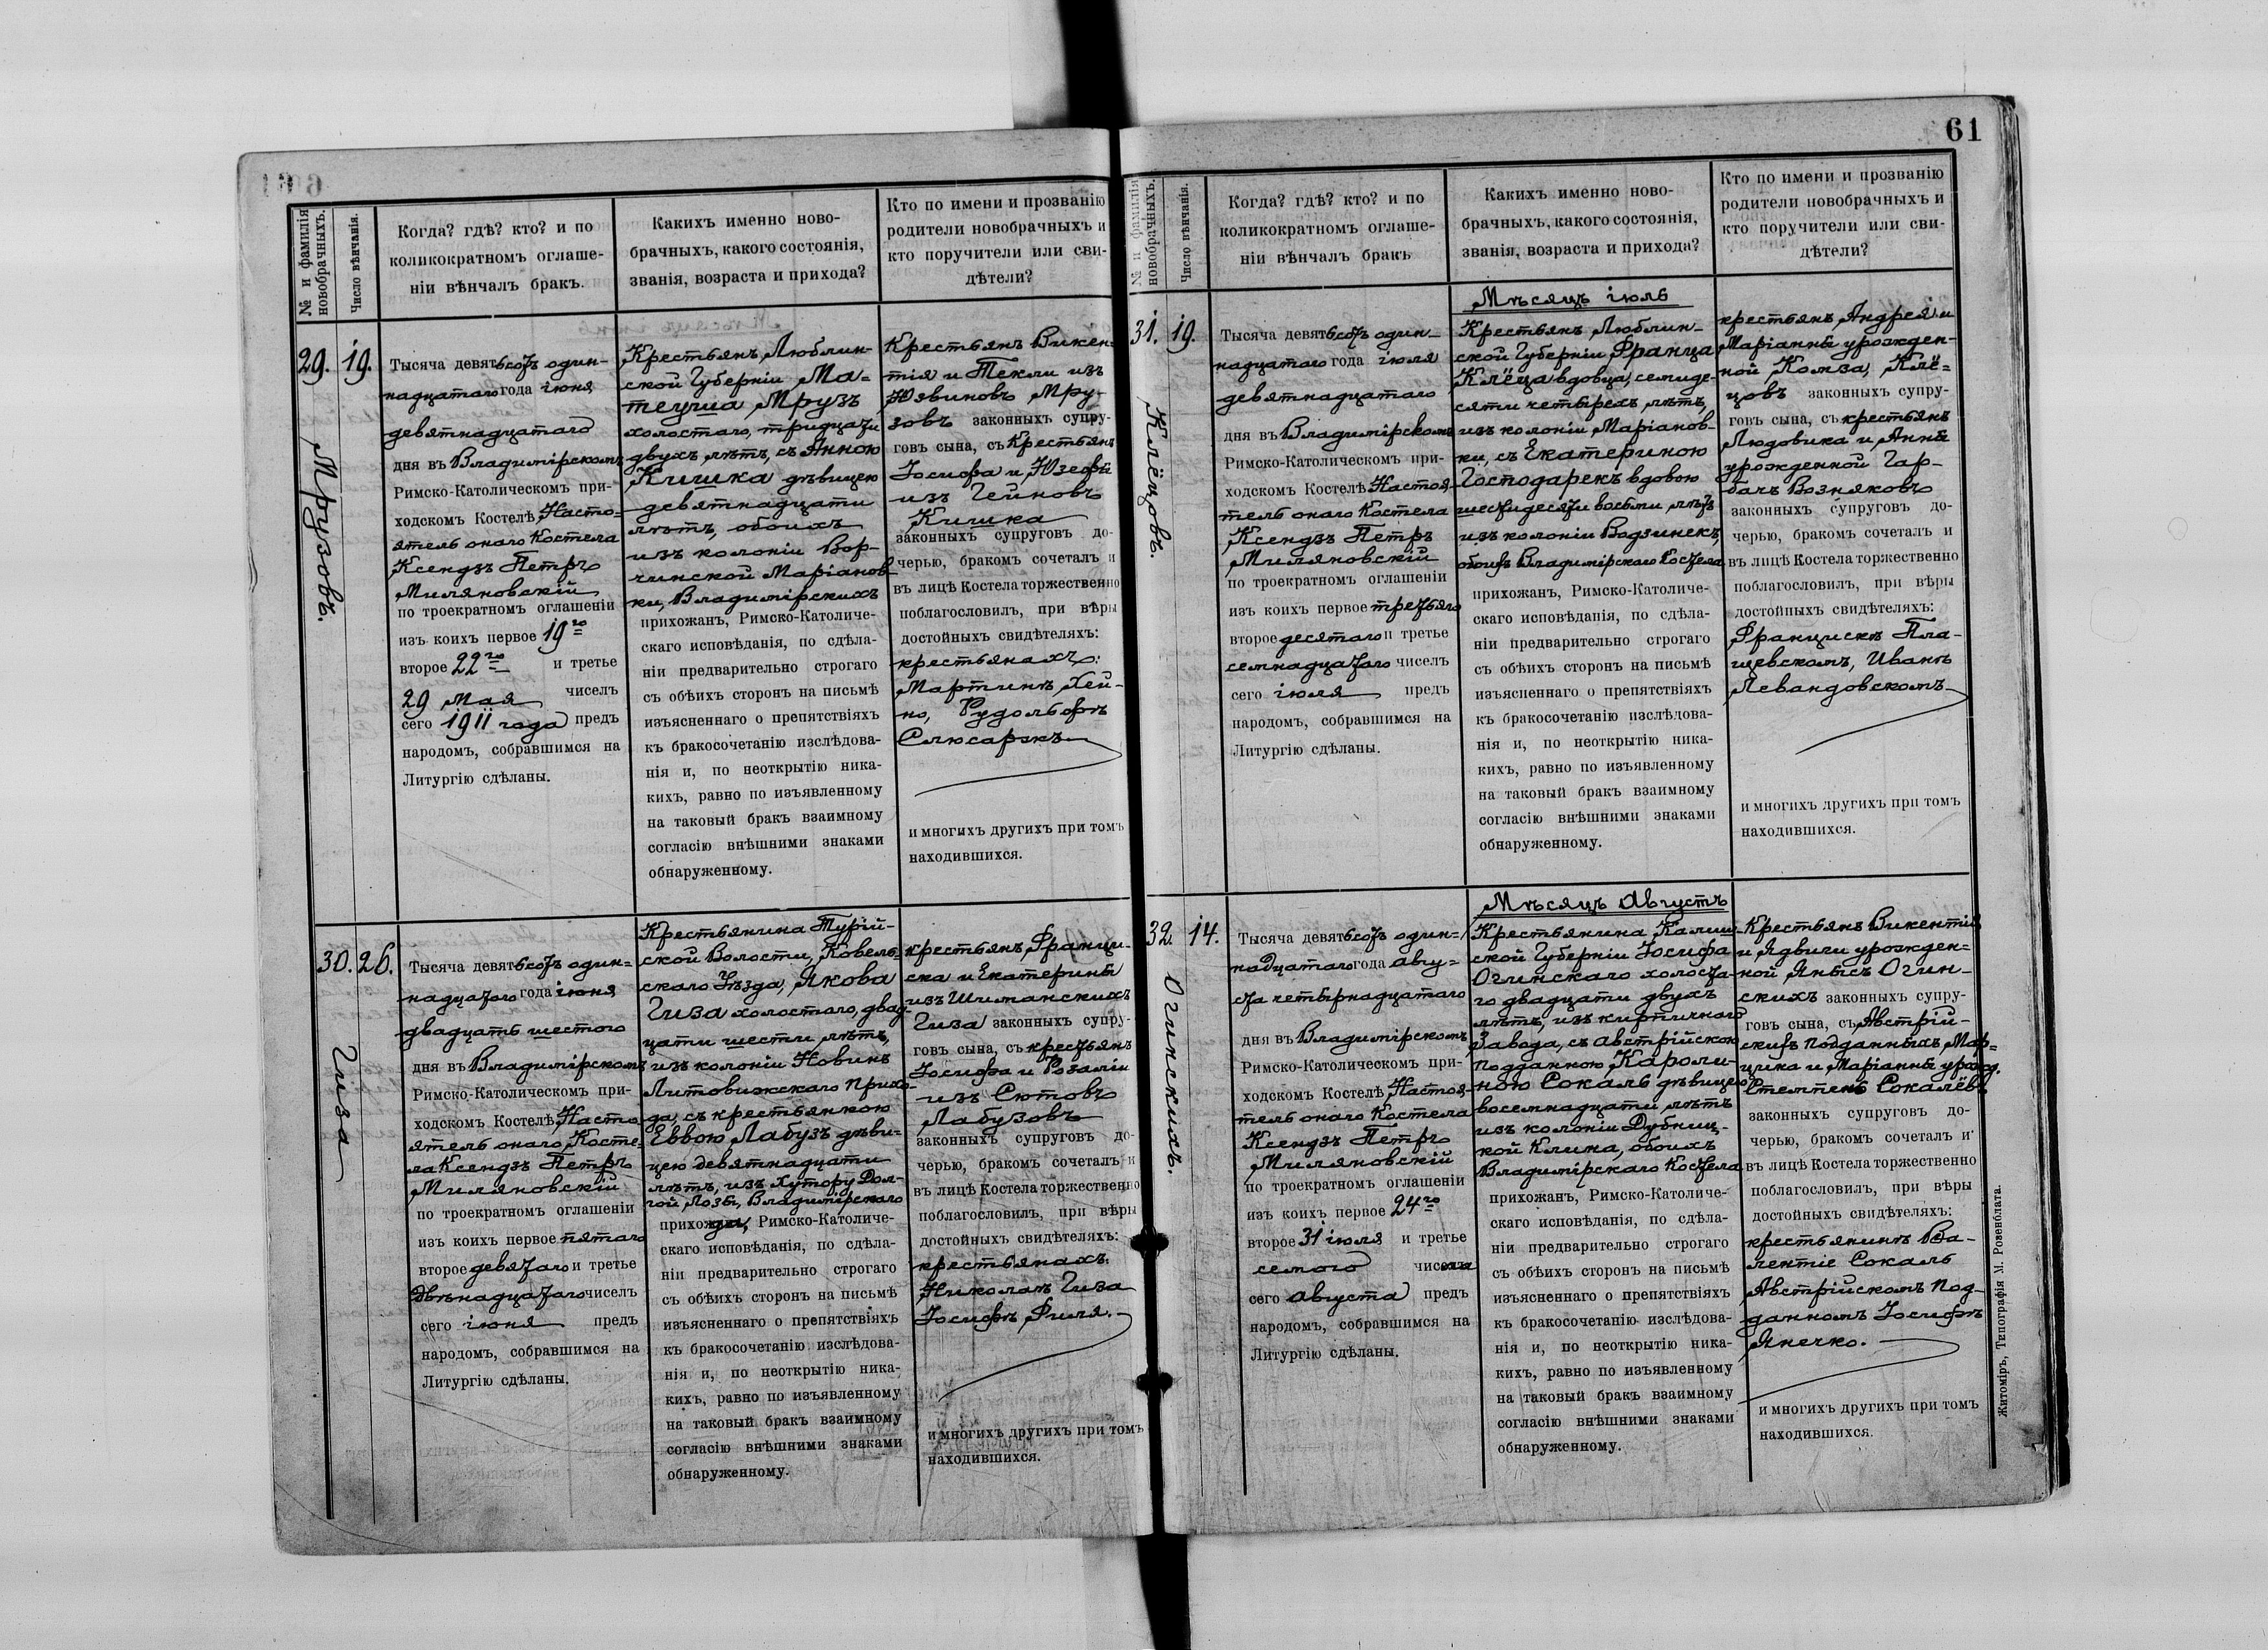 № и фамилія
новобрачныхъ.
Число вѣнчанія.
Когда? гдѣ? кто? и по
коликократномъ оглаше-
ніи вѣнчалъ бракъ.
Какихъ именно ново-
брачныхъ, какого состоянія,
званія, возраста и прихода?
Кто по имени и прозванію
родители новобрачныхъ и
кто поручители или сви-
дѣтели?
29.
Мрузовъ.
19.
Тысяча девятьсотъ один-
надцатаго года іюня
девятнадцатаго
дня въ Владимірскомъ
Римско-Католическомъ при-
ходскомъ Костелѣ Насто-
ятель онаго Костела
Ксендзъ Петръ
Миляновскій
по троекратном оглашеніи
изъ коихъ первое 19го
второе 22го и третье
29 мая чиселъ
сего 1911 года предъ
народомъ, собравшимся на
Литургію сдѣланы.
Крестьянъ Люблин-
ской Губерніи Ма-
теуша Мрузъ
холостаго, тридцати
двухъ лѣтъ, съ Анною
Кишка дѣвицею
девятнадцати
лѣтъ, обоихъ
изъ колоніи Вор-
чинской Маріанов-
ки, Владимірскихъ
прихожанъ, Римско-Католиче-
скаго исповѣданія, по сдѣла-
ніи предварительно строгаго
съ обѣихъ сторонъ на письмѣ
изъясненнаго о препятствіяхъ
къ бракосочетанію изслѣдова-
нія и, по неоткрытію ника-
кихъ, равно по изъявленному
на таковый бракъ взаимному
согласію внѣшними знаками
обнаруженному.
Крестьянъ Викен-
тія и Текли изъ
Юявиновъ Мру-
зовъ законныхъ супру-
говъ сына, съ Крестьянъ
Іосифа и Юзефы
изъ Гейновъ
Кишка
законныхъ супруговъ до-
черью, бракомъ сочеталъ и
въ лицѣ Костела торжественно
поблагословилъ, при вѣры
достойныхъ свидѣтеляхъ:
крестьянахъ:
Мартинѣ Хей-
но, Рудольфѣ
Слюсарэкъ
и многихъ другихъ при томъ
находившихся.
30.
Гиза
26.
Тысяча девятьсотъ один-
надцатаго года іюня
двадцать шестого
дня въ Владимірскомъ
Римско-Католическомъ при-
ходскомъ Костелѣ Насто-
ятель онаго Косте-
ла Ксендзъ Петръ
Миляновскій
по троекратном оглашеніи
изъ коихъ первое пятаго
второе девятаго и третье
двѣнадцатаго чиселъ
сего іюня предъ
народомъ, собравшимся на
Литургію сдѣланы.
Крестьянина Турій-
ской Волости, Ковель-
скаго Уѣзда, Якова
Гиза холостаго, двад-
цати шести лѣтъ,
изъ колоніи Новинъ
Литовижскаго прихо-
да, съ крестьянкою
Еввою Лабузъ дѣви-
цею девятнадцати
лѣтъ, изъ хутору Дол-
гой Лозы, Владимірскаго
прихода, Римско-Католиче-
скаго исповѣданія, по сдѣла-
ніи предварительно строгаго
съ обѣихъ сторонъ на письмѣ
изъясненнаго о препятствіяхъ
къ бракосочетанію изслѣдова-
нія и, по неоткрытію ника-
кихъ, равно по изъявленному
на таковый бракъ взаимному
согласію внѣшними знаками
обнаруженному.
крестьянъ Франци-
ска и Екатерины
изъ Шиманскихъ
Гиза законныхъ супру-
говъ сына, съ крестьянъ
Іосифа и Розаліи
изъ Сютовъ
Лабузовъ
законныхъ супруговъ до-
черью, бракомъ сочеталъ и
въ лицѣ Костела торжественно
поблагословилъ, при вѣры
достойныхъ свидѣтеляхъ:
крестьянахъ
Николаѣ Гиза
Іосифѣ Филя.
и многихъ другихъ при томъ
находившихся.
61
№ и фамилія
новобрачныхъ.
Число вѣнчанія.
Когда? гдѣ? кто? и по
коликократномъ оглаше-
ніи вѣнчалъ бракъ
Какихъ именно ново-
брачныхъ, какого состоянія,
званія, возраста и прихода?
Кто по имени и прозванію
родители новобрачныхъ и
кто поручители или сви-
дѣтели?
31.
Клёцовъ.
19.
Тысяча девятьсотъ один-
надцатаго года іюля
девятнадцатаго
дня въ Владимірскомъ
Римско-Католическомъ при-
ходскомъ Костелѣ Настоя-
тель онаго Костела
Ксендзъ Петръ
Миляновскій
по троекратном оглашеніи
изъ коихъ первое третьяго
второе десятаго и третье
семнадцатаго чиселъ
сего іюля предъ
народомъ, собравшимся на
Литургію сдѣланы.
Мѣсяцъ іюль
Крестьянъ Люблин-
ской Губерніи Франца
Клёца вдовца, семиде-
сяти четырехъ лѣтъ,
изъ колоніи Маріанов-
ки, съ Екатериною
Господарекъ вдовою
шестидесяти восьми лѣтъ
изъ колоніи Водзинекъ,
обоихъ Владимірскаго Костела
прихожанъ, Римско-Католиче-
скаго исповѣданія, по сдѣла-
ніи предварительно строгаго
съ обѣихъ сторонъ на письмѣ
изъясненнаго о препятствіяхъ
къ бракосочетанію изслѣдова-
нія и, по неоткрытію ника-
кихъ, равно по изъявленному
на таковый бракъ взаимному
согласію внѣшними знаками
обнаруженному.
крестьянъ Андрея и
Маріанны урожден-
ной Комза, Клё-
цовъ законныхъ супру-
говъ сына, съ крестьянъ
Людовика и Анны
урожденной Гар-
бачъ Возняковъ
законныхъ супруговъ до-
черью, бракомъ сочеталъ и
въ лицѣ Костела торжественно
поблагословилъ, при вѣры
достойныхъ свидѣтеляхъ:
Францискѣ Пла-
щевскомъ, Иванѣ
Левандовскомъ
и многихъ другихъ при томъ
находившихся.
32.
Огинскихъ.
14.
Тысяча девятьсотъ один-
надцатаго года авгу-
ста четырнадцатаго
дня въ Владимірскомъ
Римско-Католическомъ при-
ходскомъ Костелѣ Настоя-
тель онаго Костела
Ксендзъ Петръ
Миляновскій
по троекратном оглашеніи
изъ коихъ первое 24го
второе 31 іюля и третье
семого числа
сего августа предъ
народомъ, собравшимся на
Литургію сдѣланы.
Мѣсяцъ Августъ
Крестьянина Калиш-
ской Губерніи Іосифа
Огинскаго холоста-
го двадцати двухъ
лѣтъ, изъ кирпичнаго
Завода, съ австрійскою
подданною Кароли-
ною Сокаль дѣвицею
восемнадцати лѣтъ
изъ колоніи Дубниц-
кой Клина, обоихъ
Владимірскаго Костела
прихожанъ, Римско-Католиче-
скаго исповѣданія, по сдѣла-
ніи предварительно строгаго
съ обѣихъ сторонъ на письмѣ
изъясненнаго о препятствіяхъ
къ бракосочетанію изслѣдова-
нія и, по неоткрытію ника-
кихъ, равно по изъявленному
на таковый бракъ взаимному
согласію внѣшними знаками
обнаруженному.
Крестьянъ Викентія
и Ядвиги урожден-
ной Янысъ Огин-
скихъ законныхъ супру-
говъ сына, съ Австрій-
скихъ подданныхъ, Мар-
цина и Маріанны урожд.
Стемпень Сокалёвъ
законныхъ супруговъ до-
черью, бракомъ сочеталъ и
въ лицѣ Костела торжественно
поблагословилъ, при вѣры
достойныхъ свидѣтеляхъ:
крестьянинѣ Ва-
лентіе Сокаль
Австрійскомъ под-
данномъ Іосифѣ
Янечко.
и многихъ другихъ при томъ
находившихся.
Житоміръ, Типографія М. Розенблата.